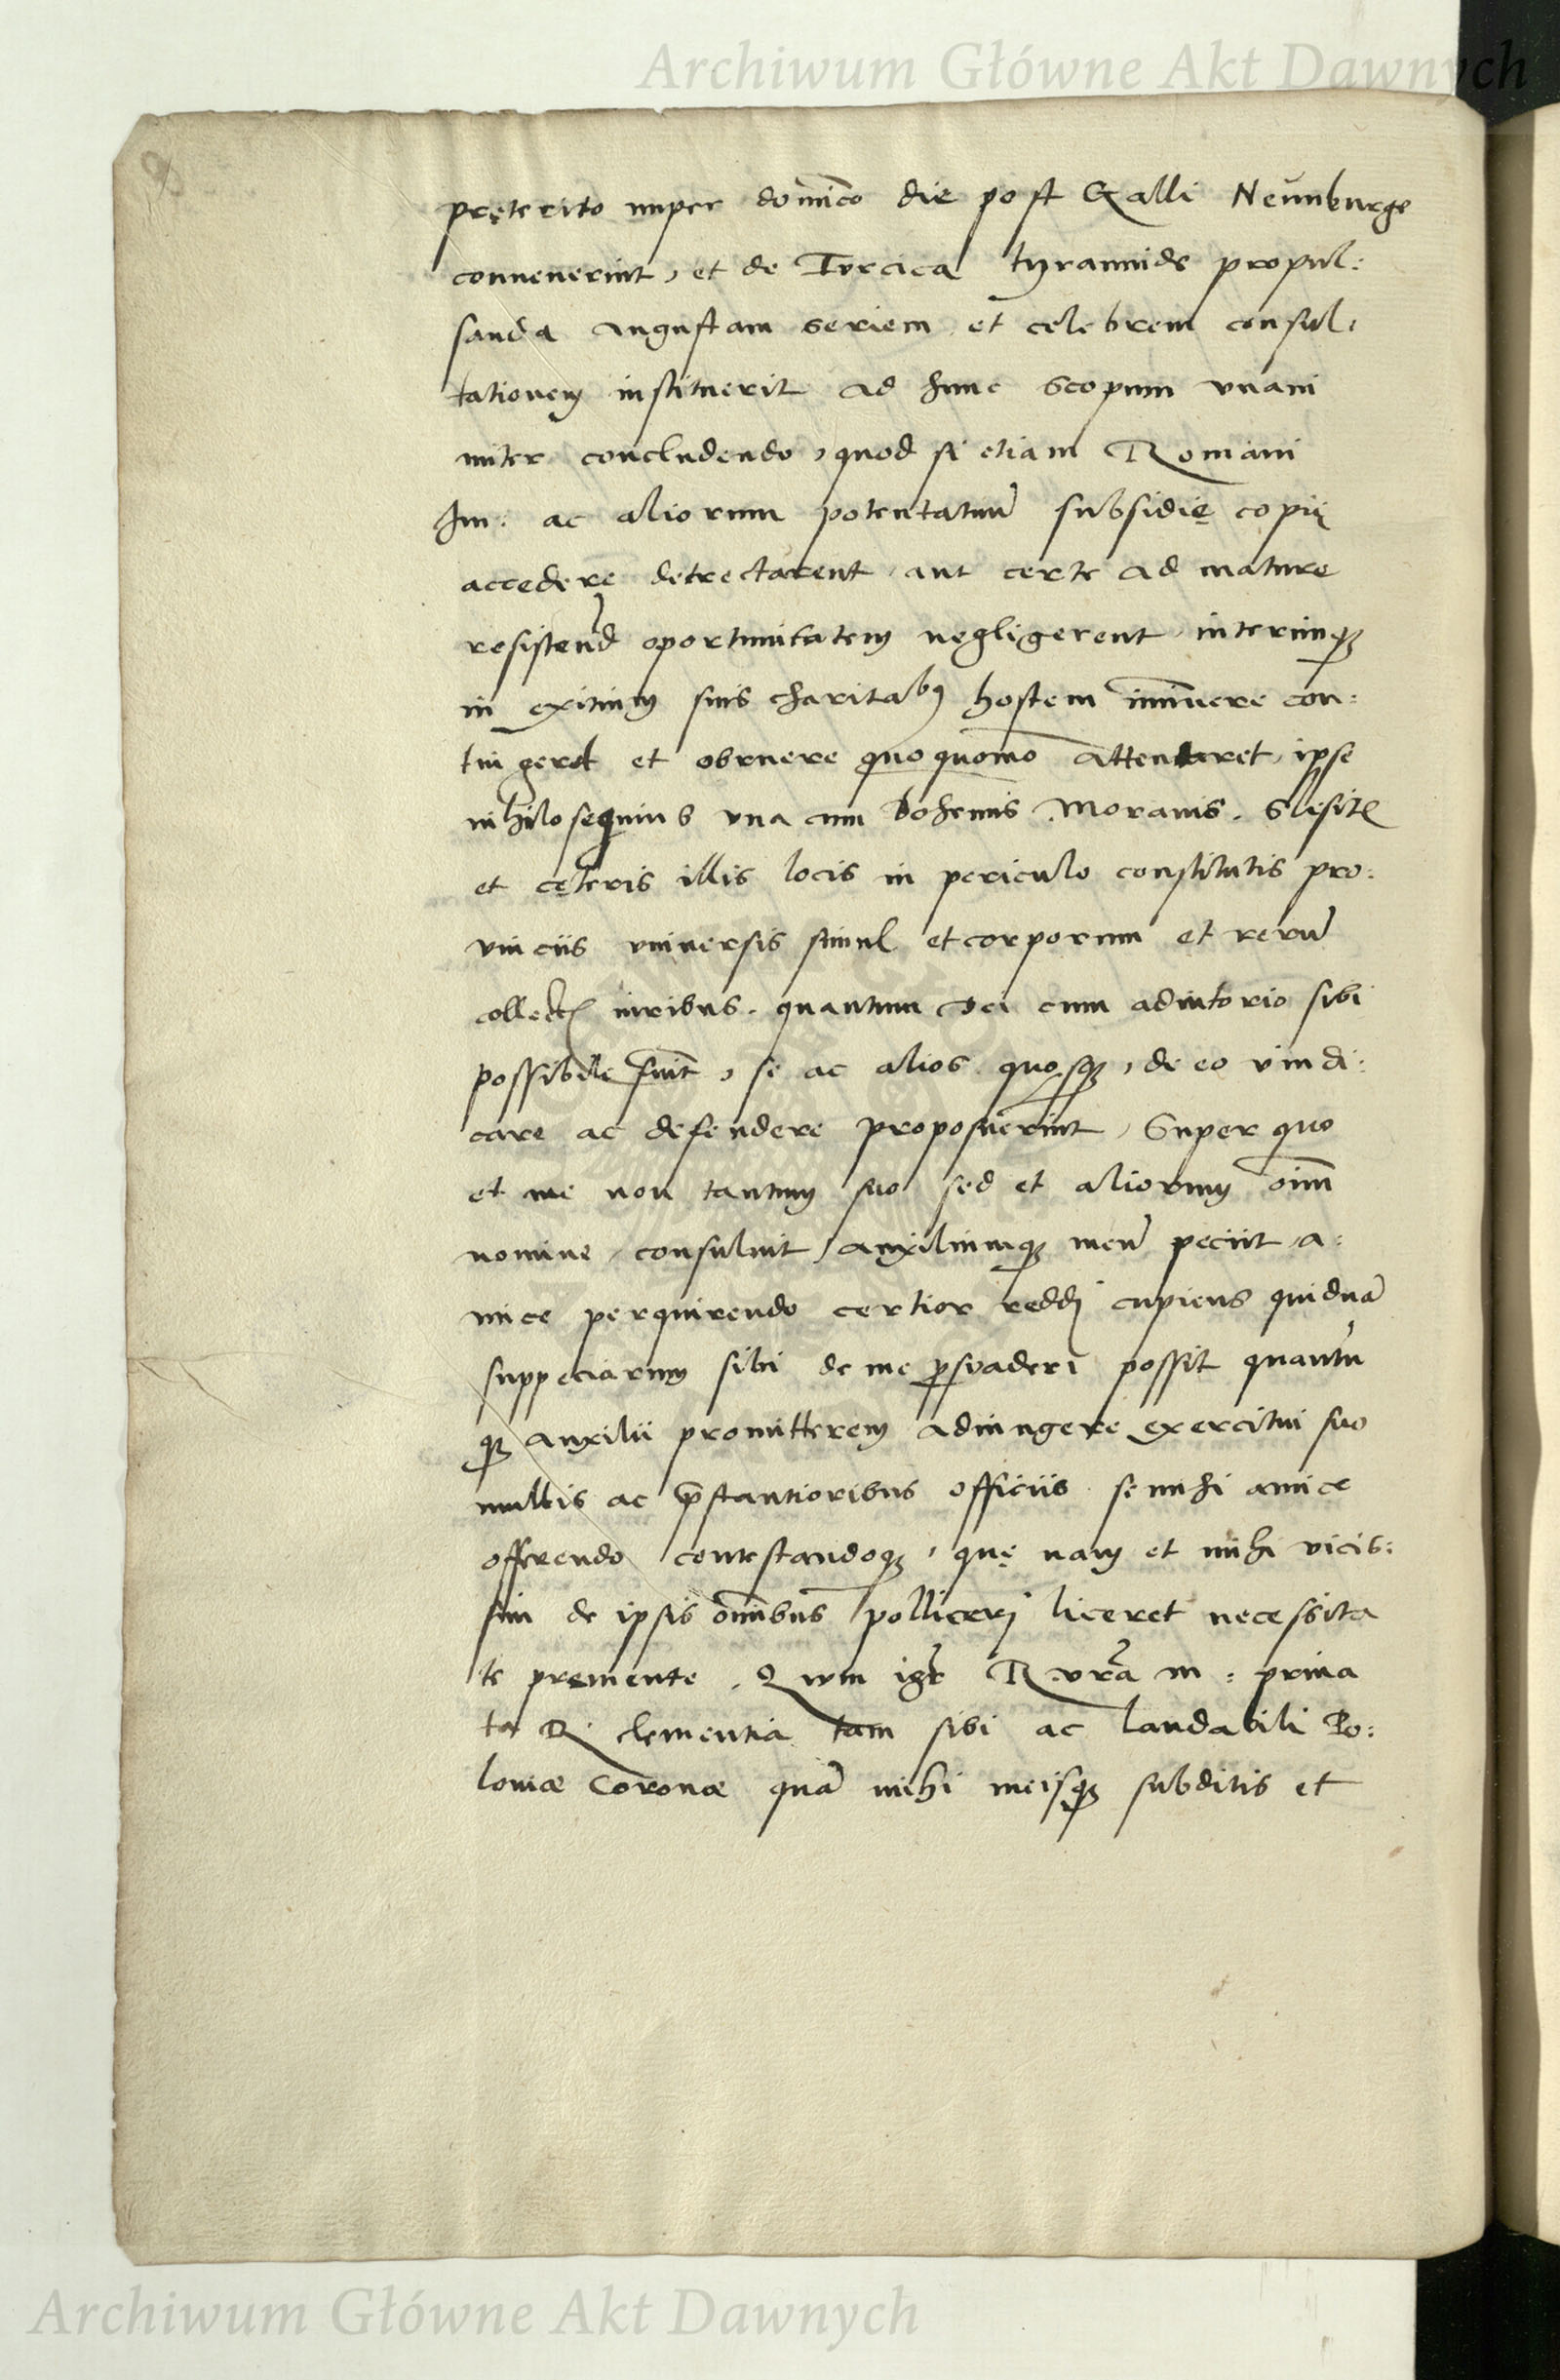 Archiwum Główne Akt Dawnych
pręterito nuper dominico die post Galli Neunburge
convenerint, et de Turcica tyrannide propul:
sanda angustam seriem et celebrem consul:
tationem instituerit ad hunc scopum vnani
miter concludendo, quod si etiam Romani
Im: ac aliorum potentatum̄ subsidię copię
accedere detrectarent, aut certe ad mature
resistend oportunitatem negligerent, interimq;
in exitium suis charitabq hostem imminere con:
tingeret et obruere quoquomo attentaret, ipse
nihilosequius vna cum Bohemis Moravis. Slesit
et cęteris illis locis in periculo constitutis pro:
vinciis vniversis simul et corporum et rerū
collectis viribus. quantum Dei cum adiutorio sibi
possibile fuit, se ac alios quosq;, de eo vindi:
care ac defendere proposuerint, Super quo
et me non tantum suo sed et aliorum oīm
nomine, consuluit, auxiliumq; meū peciit, a:
mice perquirendo certior reddj cupiens quidnā
suppeciarum sibi de me psvaderi possit quantū
q; auxilii promitterem adiungere exercitui suo
multis ac pstantioribus officiis se mihi amice
offerendo contestandoq;, quę nam et mihi vicis:
sim de ipsis omnibus pollicerj liceret necessita
te premente. Qvum igr R vra m: priva
ta R clementia tam sibi ac laudabili Po:
loniæ Coronæ quā mihi meisq; subditis et
Archiwum Główne Akt Dawnych